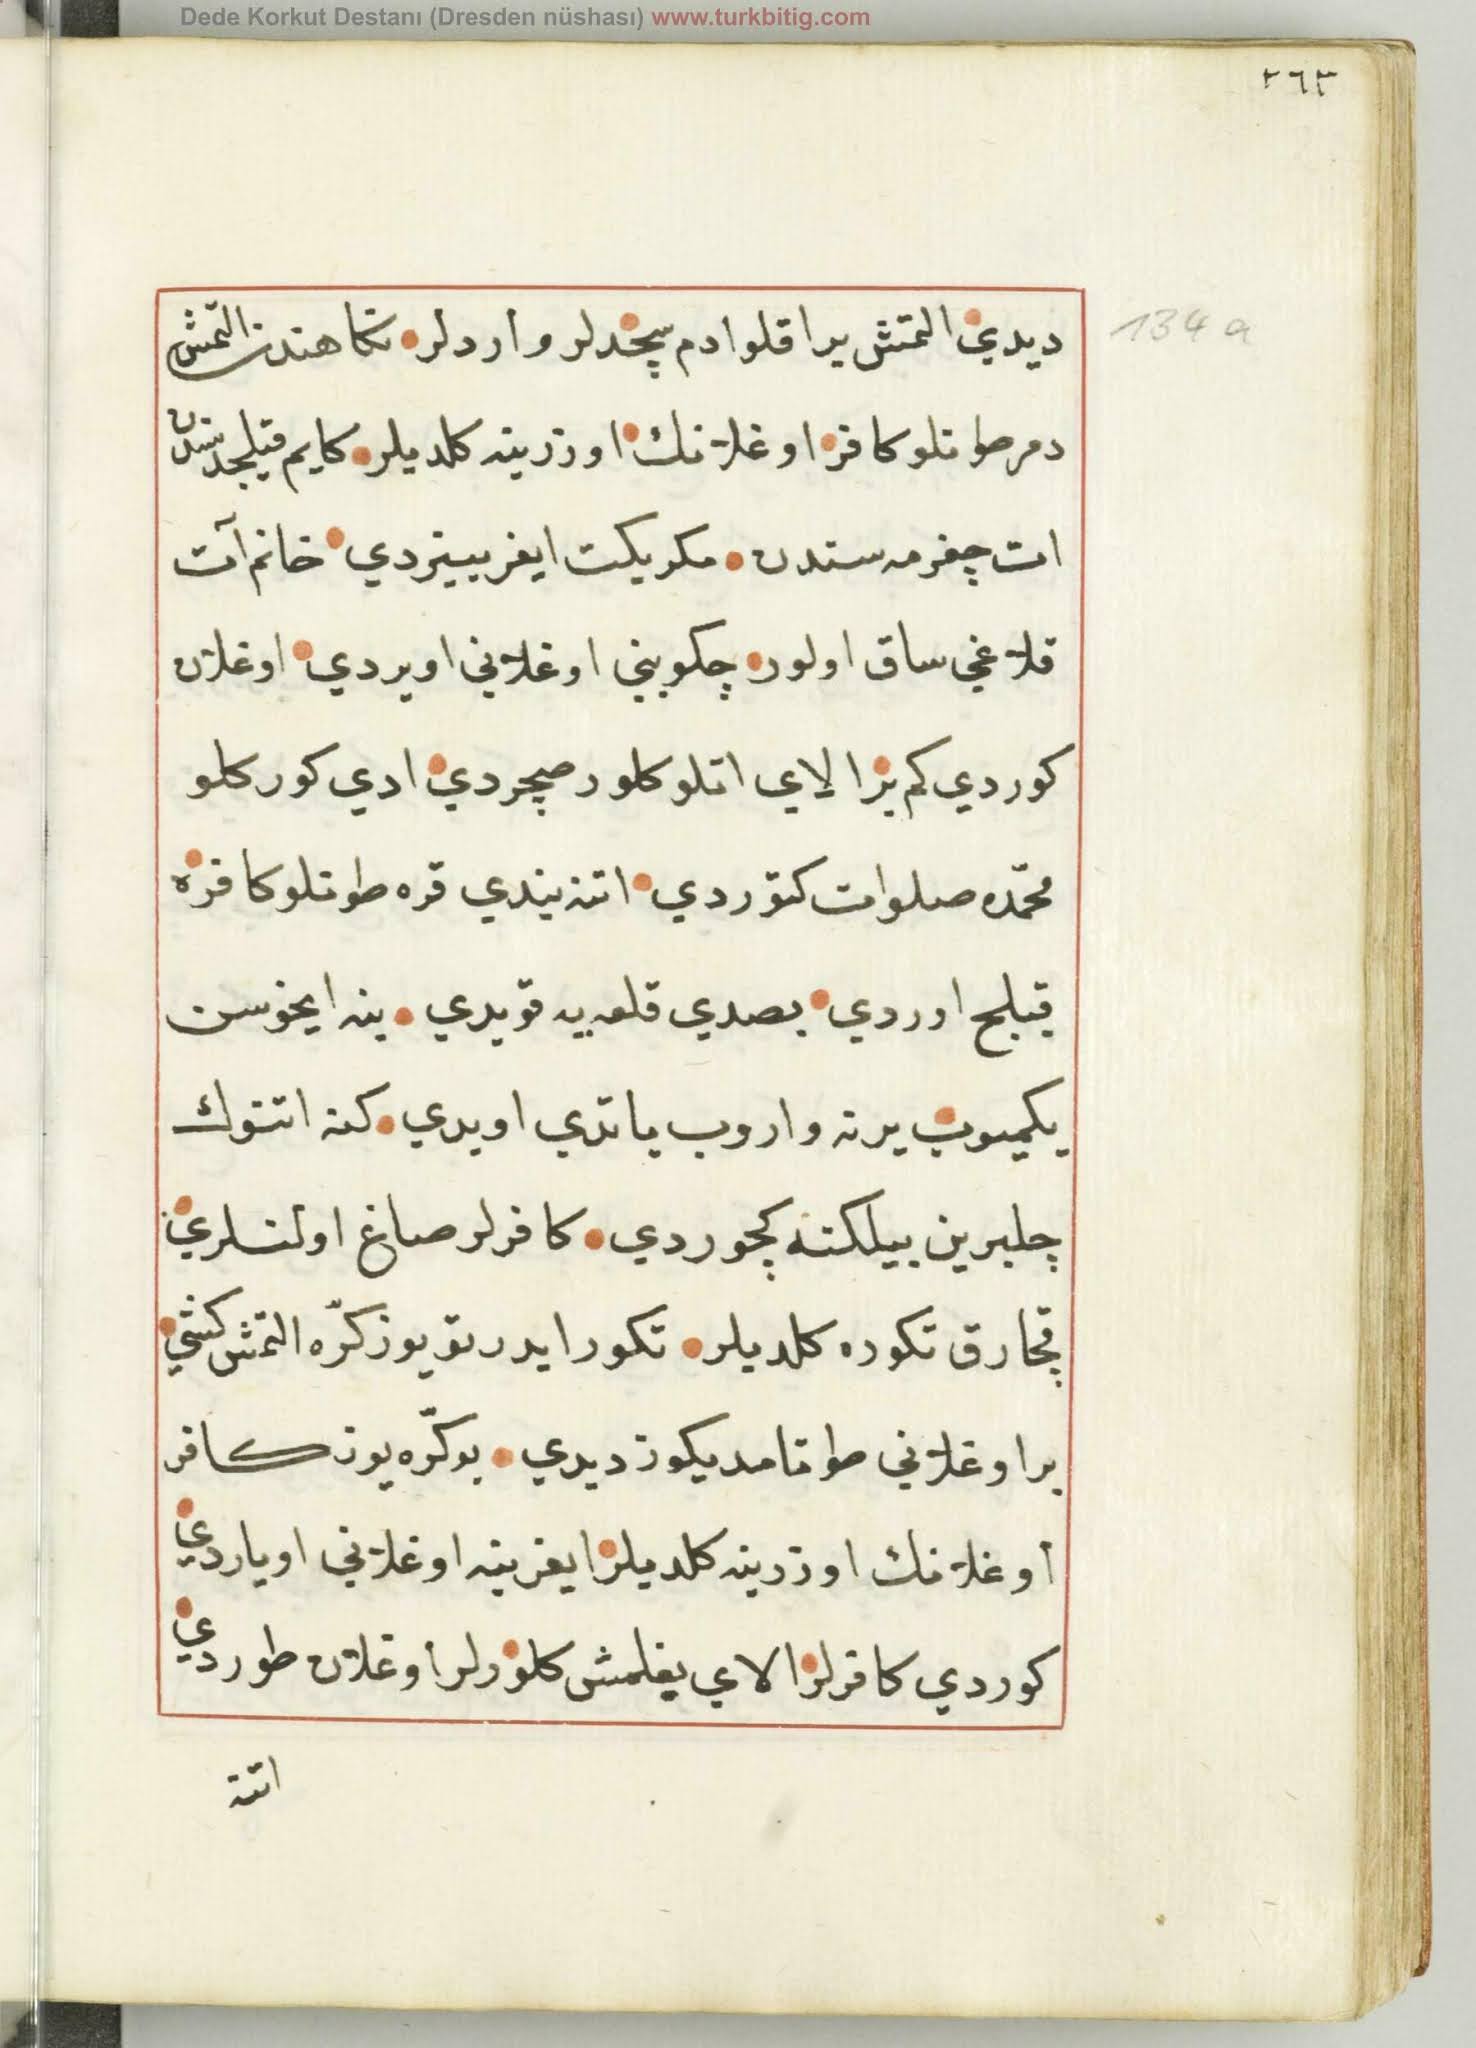 Dede Korkut Destanı (Dresden nüshası) www.turkbitig.com
٢٦٣
134 a
ديدي التمش يراقلو ادم سچدلر واردلر نكاهندن التمش
دمر طونلو كافر اوغلانك اوزرينه كلديلر كايم قيلجدسندن
ات چغرمه سندن مكر يكت ايغر بينردي خانم آت
قلاغي ساق اولور چكوبني اوغلاني اويردي اوغلان
كوردي كم بر الاي اتلو كلور صچردي ادي كوركلو
محمّده صلوات كتوردي اتنه بندي قره طونلو كافره
قيلج اوردي بصدي قلعه يه قويدي ينه ايخوسن
يكميوب يرنه واروب ياتدي اويدي كنه اتنوك
چلبرين بيلكنه كچوردي كافرلر صاغ اولنلري
قچارق تكوره كلديلر تكور ايدر تو يوزكرّه التمش كشي
بر اوغلاني طوتامديكوز ديدي بو كرّه يوز كافر
أوغلانك اوزرينه كلديلر ايغر ينه اوغلاني اوياردي
كوردي كافرلر الاي يغلمش كلورلر أوغلان طوردي
اتنه